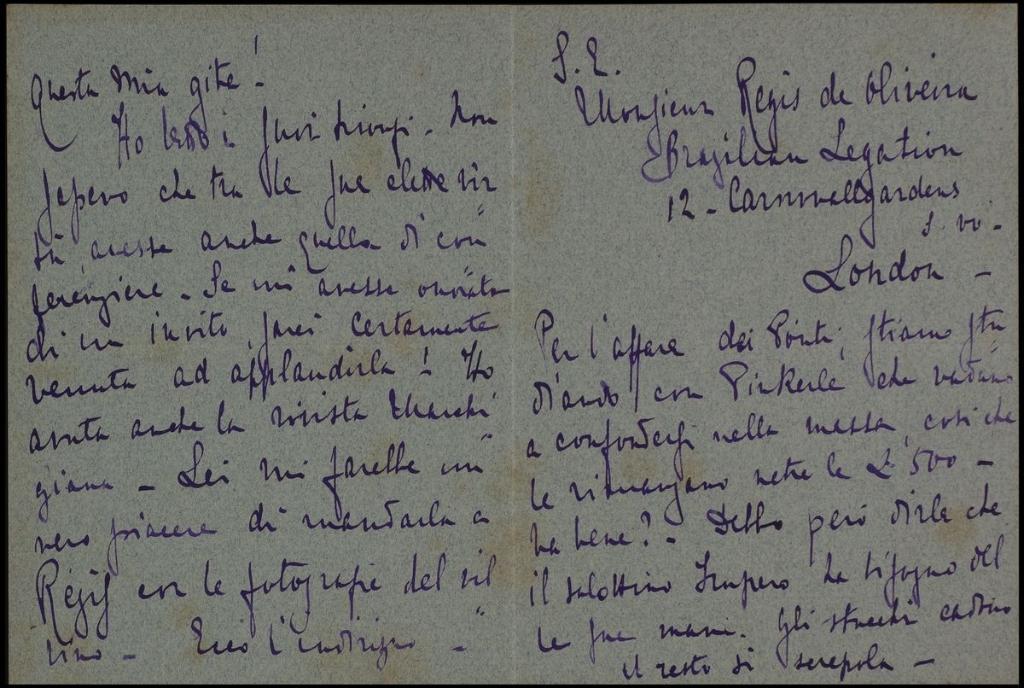 Questa mia gita!
Ho letto i suoi trionfi. Non
sapevo che tra le sue elette vir
tù, avesse anche quella di con
ferenziere. Se mi avesse onorata
di un invito, sarei certamente
venuta ad applaudirla! Ho
avuta anche la rivista Marchi
giana - Lei mi farebbe un
vero piacere di mandarla a
Régis con le fotografie del vil
lino - Ecco l'indirizzo -
S. E.
Monsieur Regis de Oliveira
Brazilian Legation
12 - Cornwallgardens
S. W. -
London -
Per l'affare dei Ponti, stiamo stu
diando con Pinkerle che vadano
a confondersi nella massa, così che
le rimangano nette le L 500 -
Va bene? - Debbo però dirle che
il salottino Impero ha bisogno del
le sue mani. Gli stucchi cadono
il resto si screpola -